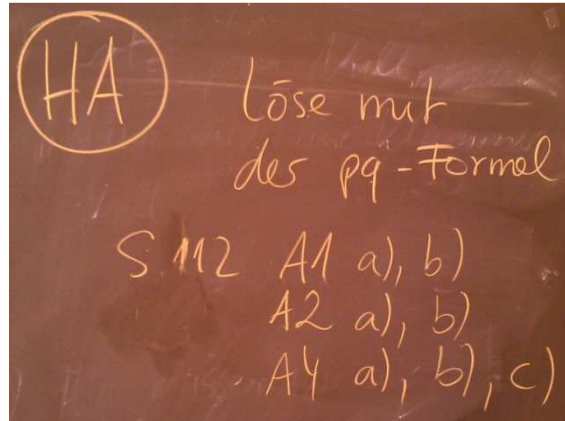 HA
Löse mit
der pq-Formel
S. 112 A1 a), b)
A2 a), b)
A4 a), b), c)